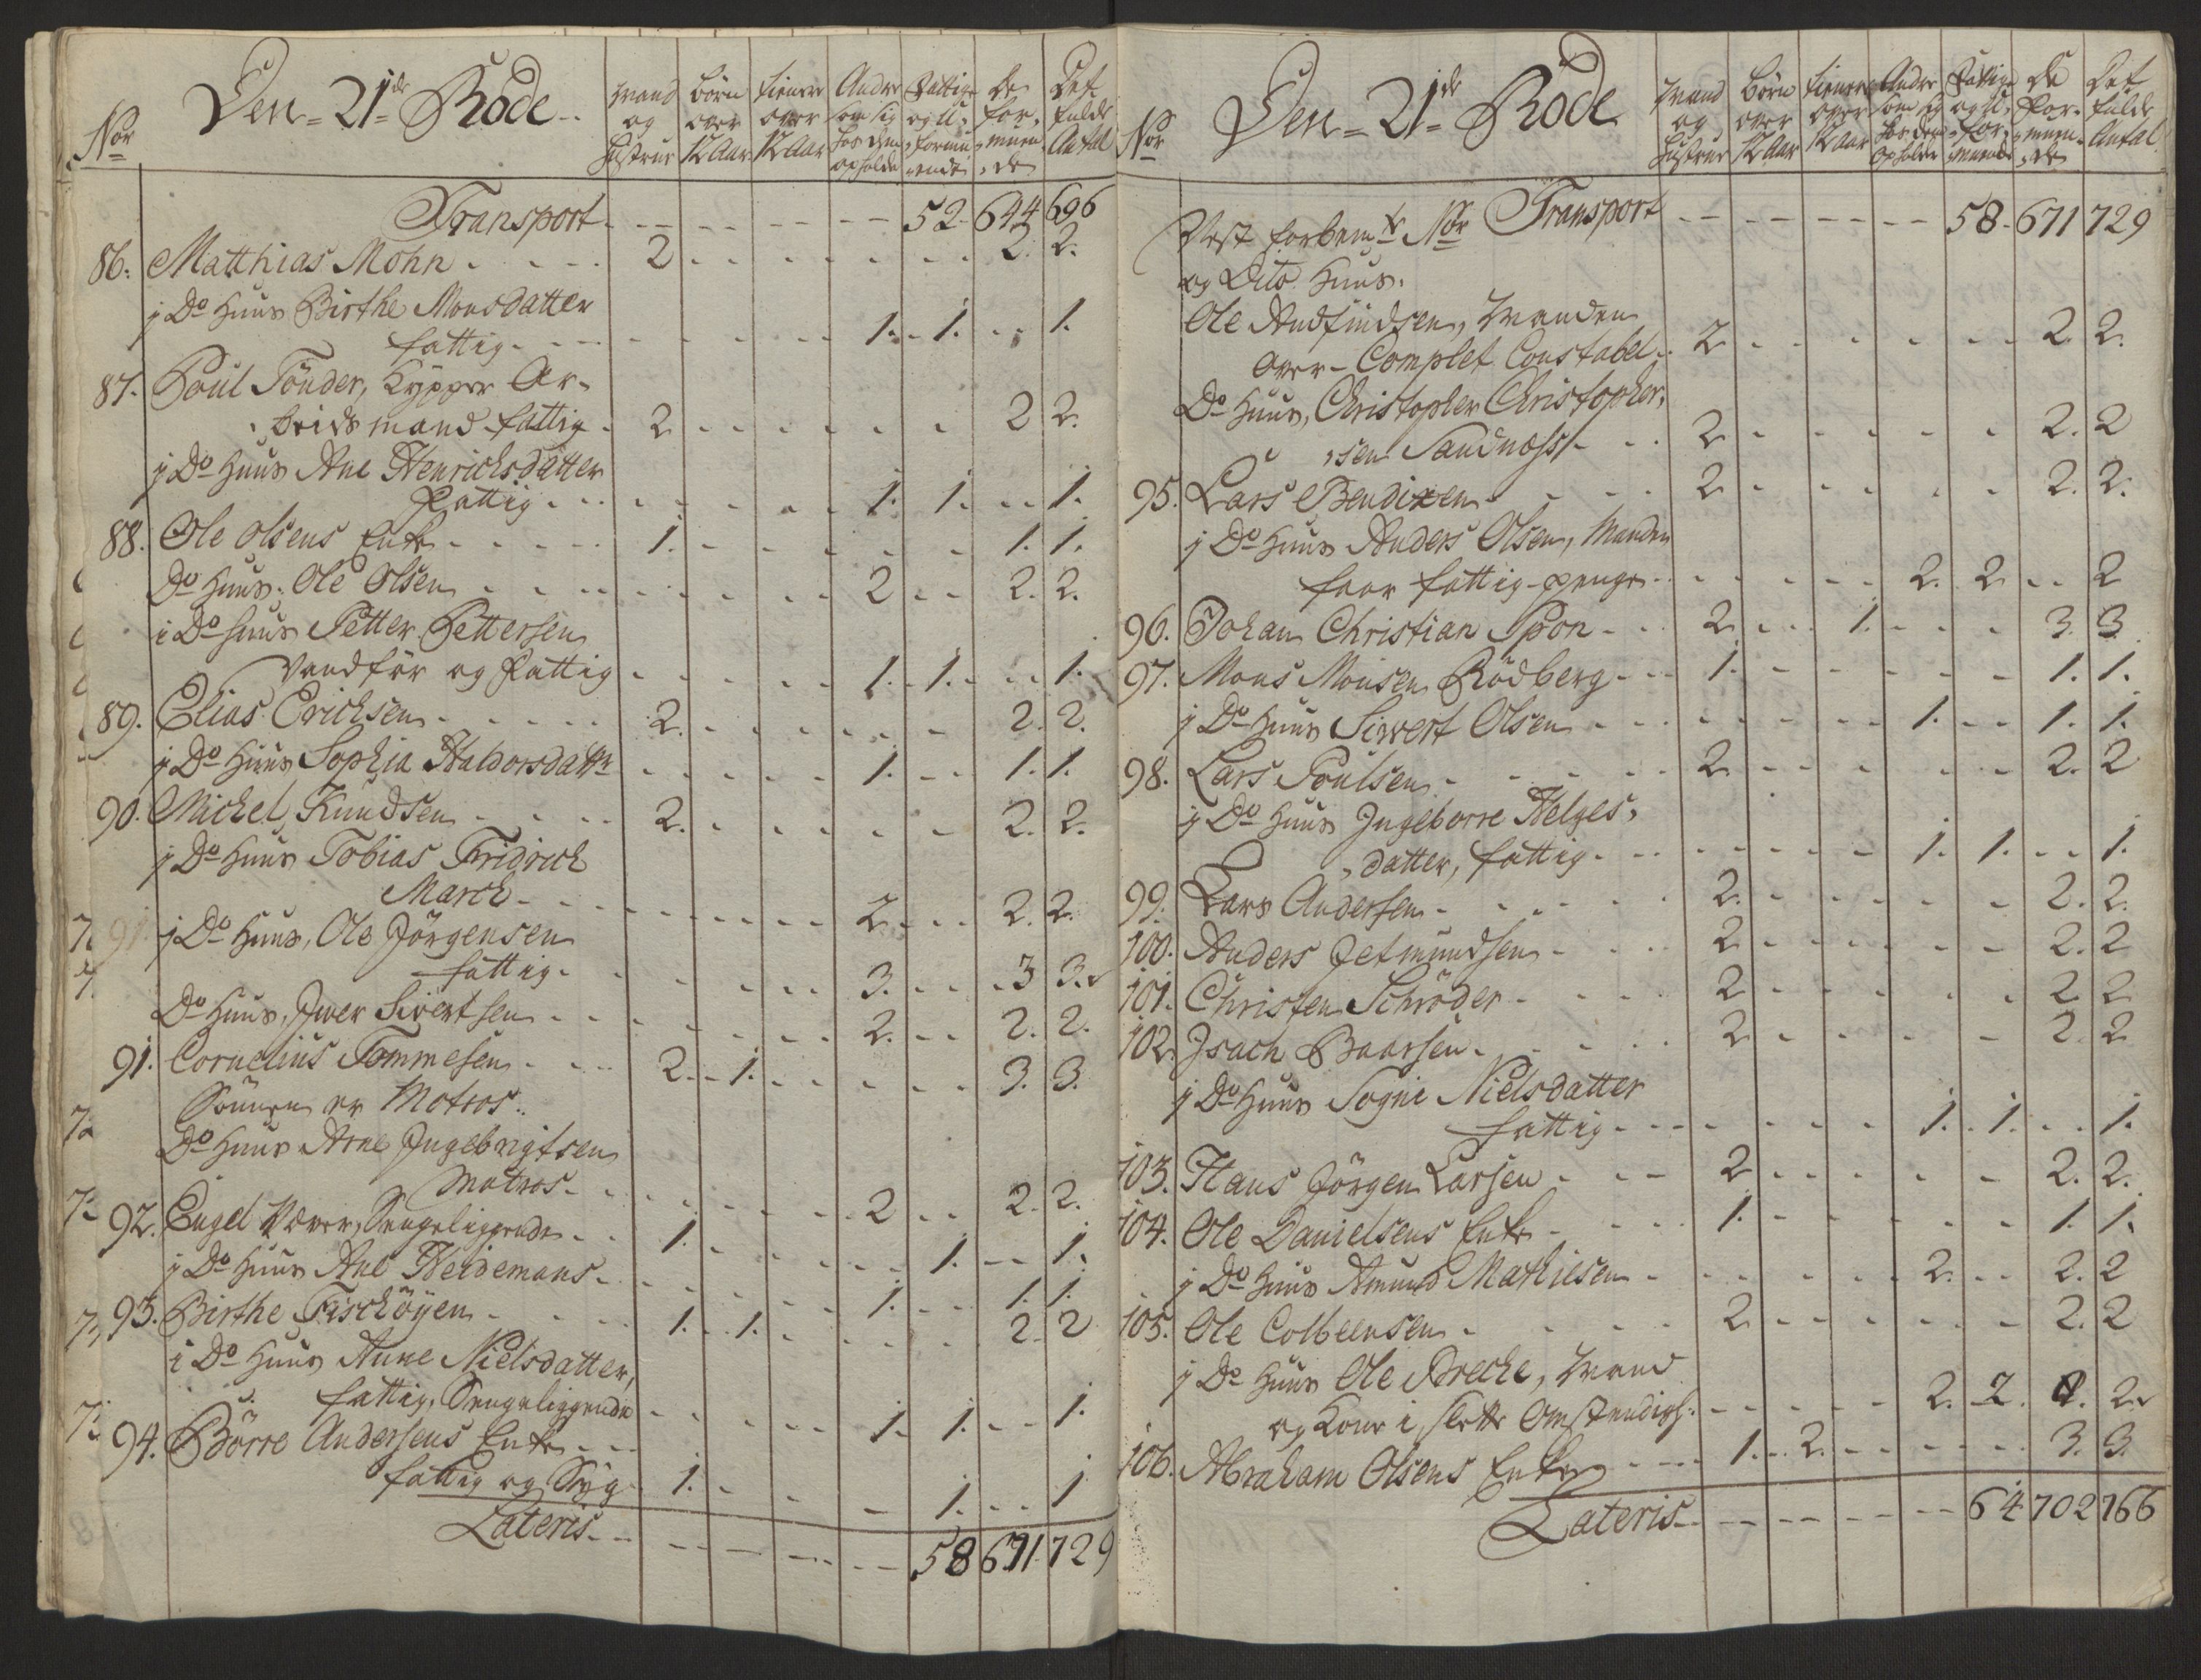 Nor
Den 21de Rode
Mand og Hustrue
Börn over 12 Aar
Tienere over 12 Aar
Andre som sig hos dem opholde
Fattige og U-formuende
De For-muende
Det fulde Antal
Transport - - - - - - 52 - 644 696
86. Matthias Mohn - - - - 2 - - - - - - 2. 2.
j Do Huus Birthe Monsdatter
fattig - - - - - - 1. - 1. - - 1.
87. Poul Tönder, Kypper Ar-
beids mand fattig - 2 - - - - - - 2 2.
j Do Huus Ane Henrichsdatter
Fattig - - - - - - 1. 1. - - 1.
88. Ole olsens Enke - - - - 1. - - - - - 1. 1.
Do Huus. Ole Olsen - - - - - - 2 - - 2. 2.
i Do Huus Petter Pettersen
Vandför og Fattig - - - - - 1. - 1. - - 1.
89. Elias Erichsen - - - - 2. - - - - - 2. 2.
j Do Huus Sophia Haldorsdattr - - - - - 1. - - 1. 1.
90. Michel Knudsen - - - 2. - - - - - 2. 2.
j Do Huus Tobias Fridrich
March - - - - - - 2. - - 2. 2.
j Do Huus, Ole Jörgensen
fattig - - - - - 3. - - - 3 3.
Do Huus, Iver Sivertsen - - - - - - 2. - - 2. 2.
91. Cornelius Tommesen - - - 2. - 1. - - - - - 3. 3.
Sönnen er Matros.
Do Huus Arne Ingebrigtsen
Matros - - - - - - 2 - - 2. 2.
92. Engel Væver, Sengeliggende - - 1. - - - - 1. - - 1.
j Do Huus Ane Heidemans - - - - - 1. - - 1. 1.
93. Birthe Fischöyen - - - 1. - 1. - - - - 2. 2
i Do Huus Anne Nielsdatter,
fattig, Sengeliggende - - - - - 1. 1. - - 1.
94. Börre Andersens Enke - - -
fattig og Syg - 1. - - - 1. - - 1
Lateris - - - - - - - 58 671 729
Nor
Den 21de Rode
Mand og Hustrue
Börn over 12 Aar
Tienere over 12 Aar
Andre som sig hos dem opholde
Fattige og U-for-muende
De For-muen-de
Det fulde Antal
Transport - - - - - - 58 - 671 729
Næst forbemte Nor
og Dito Huus.
Ole Andfindsen, Manden
Over - Complet Constabel - 2 - - - - - - 2. 2.
Do Huus, Christopher Christopher-
sen Sandnæss - - - 2 - - - - - 2. 2
95. Lars Bendixen - - - 2 - - - - - 2. 2.
j Do Huus Anders Olsen, Manden
faar fattig-penge - - - - - - 2. 2 - - 2
96. Johan Christian Spon - - 2 - - 1. - - - 3. 3
97. Mons Monsen Rödberg - - - 1. - - - - - 1. 1.
j Do Huus Siwert Olsen - - - - - - - 1. - - 1. 1.
98. Lars Poulsen - - - - - 2. - - - - - 2. 2
j Do Huus Ingeborre Helges-
datter, fattig - - - - - - 1. 1. - - 1.
99. Lars Andersen - - - - - 2. - - - - 2. 2.
100. Anders Jetmundsen - - - 2 - - - - - 2. 2
101. Christen Schröder - - - - 2 - - - - - 2 2
102. Isach Baarsen - - - - - 2 - - - - - 2. 2
j Do Huus Sogni Nielsdatter
fattig - - - - - - - 1. - 1. - - 1.
103. Hans Jörgen Larsen - - - 2 - - - - - 2. 2.
104. Ole Danielsens Enke - - - 1. - - - - - 1. 1.
j Do Huus Amund Mathiesen - - - - - - 2. - - 2. 2
105. Ole Colbeensen - - - - - 2 - - - - - 2. 2
j Do Huus Ole Breche, Mand
og Kone i Slette Omstendigh: - - - - - 2. 2. 2.
106. Abraham Olsens Enke - - - 1. - 2. - - - - - 3. 3.
Lateris - - - - - - - 64 702 766